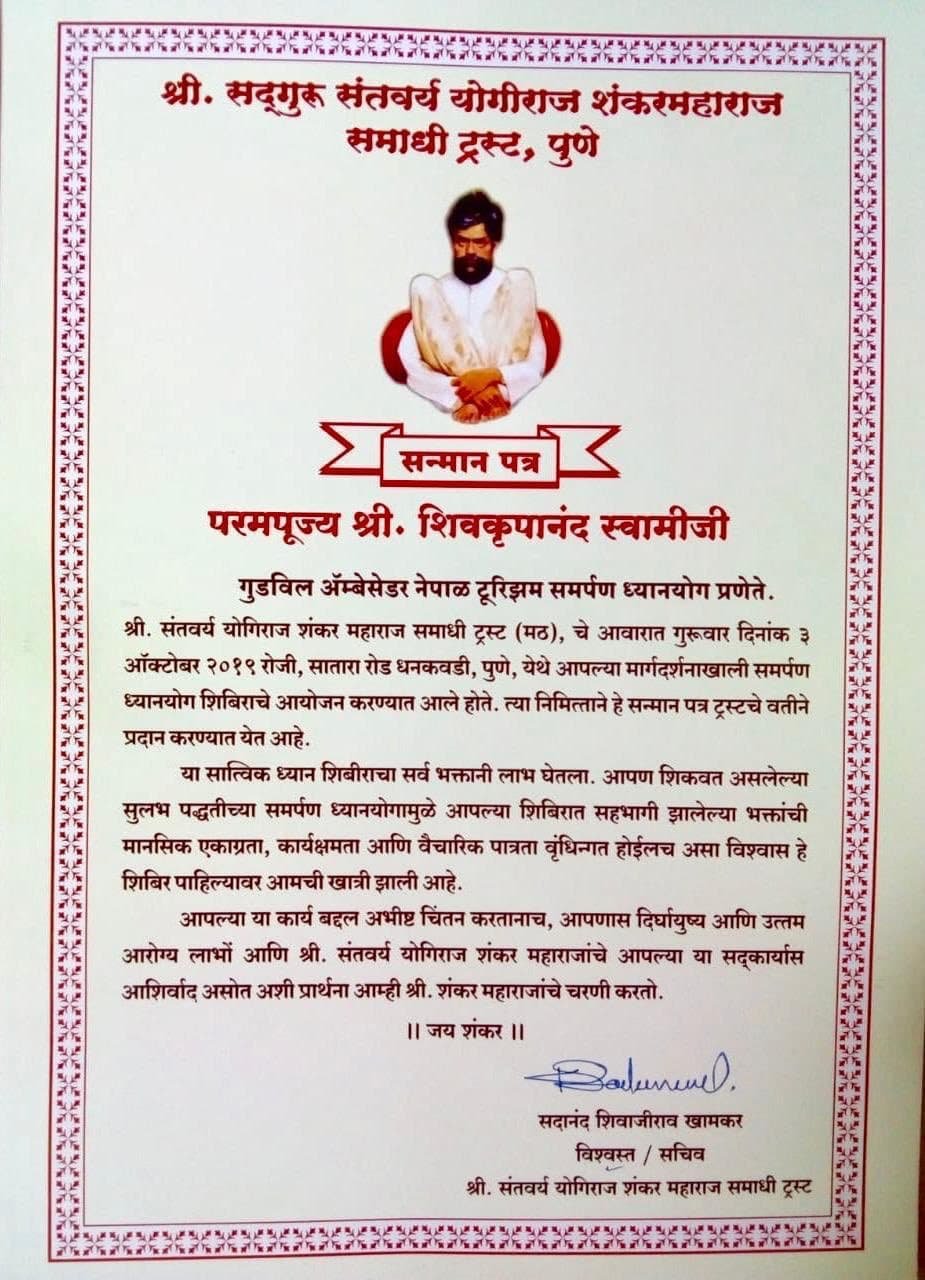 श्री. सद्‌गुरू संतवर्य योगीराज शंकरमहाराज
समाधी ट्रस्ट, पुणे
सन्मान पत्र
परमपूज्य श्री. शिवकृपानंद स्वामीजी
गुडविल ॲम्बेसेडर नेपाळ टूरिझम समर्पण ध्यानयोग प्रणेते.
श्री. संतवर्य योगिराज शंकर महाराज समाधी ट्रस्ट (मठ), चे आवारात गुरूवार दिनांक ३
ऑक्टोबर २०१९ रोजी, सातारा रोड धनकवडी, पुणे, येथे आपल्या मार्गदर्शनाखाली समर्पण
ध्यानयोग शिबिराचे आयोजन करण्यात आले होते. त्या निमित्ताने हे सन्मान पत्र ट्रस्टचे वतीने
प्रदान करण्यात येत आहे.
या सात्विक ध्यान शिबीराचा सर्व भक्तानी लाभ घेतला. आपण शिकवत असलेल्या
सुलभ पद्धतीच्या समर्पण ध्यानयोगामुळे आपल्या शिबिरात सहभागी झालेल्या भक्तांची
मानसिक एकाग्रता, कार्यक्षमता आणि वैचारिक पात्रता वृंधिन्गत होईलच असा विश्वास हे
शिबिर पाहिल्यावर आमची खात्री झाली आहे.
आपल्या या कार्य बद्दल अभीष्ट चिंतन करतानाच, आपणास दिर्घायुष्य आणि उत्तम
आरोग्य लाभों आणि श्री. संतवर्य योगिराज शंकर महाराजांचे आपल्या या सद्‌कार्यास
आशिर्वाद असोत अशी प्रार्थना आम्ही श्री. शंकर महाराजांचे चरणी करतो.
।। जय शंकर ।।
सदानंद शिवाजीराव खामकर
विश्वस्त / सचिव
श्री. संतवर्य योगिराज शंकर महाराज समाधी ट्रस्ट